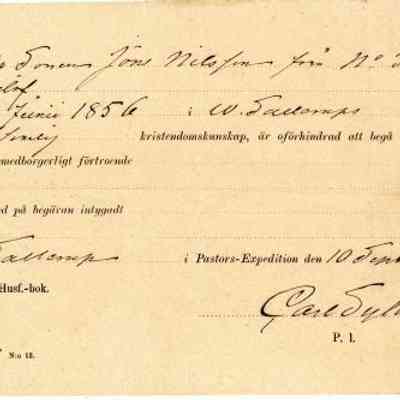 Jöns Nilsson från No
Juni 1856 i W.
kristendomskunskap, är oförhindrad att begå
medborgerligt förtroende
d på begäran intygadt
i Pastors-Expedition den 10 Sept
Husf.-bok.
Carl
P. l.
N:o 13.